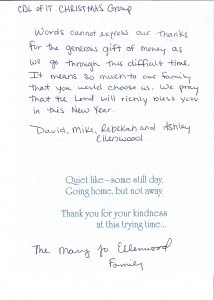 CDL of IT CHRISTMAS Group
Words cannot express our thanks
for the generous gift of money as
we go through this difficult time.
It means so much to our family
that you would choose us. We pray
that the Lord will richly bless you
in this New Year.
David, Mike, Rebekah and Ashley
Ellenwood
Quiet like – some still day.
Going home, but not away.
Thank you for your kindness
at this trying time...
The Mary Jo Ellenwood
Family